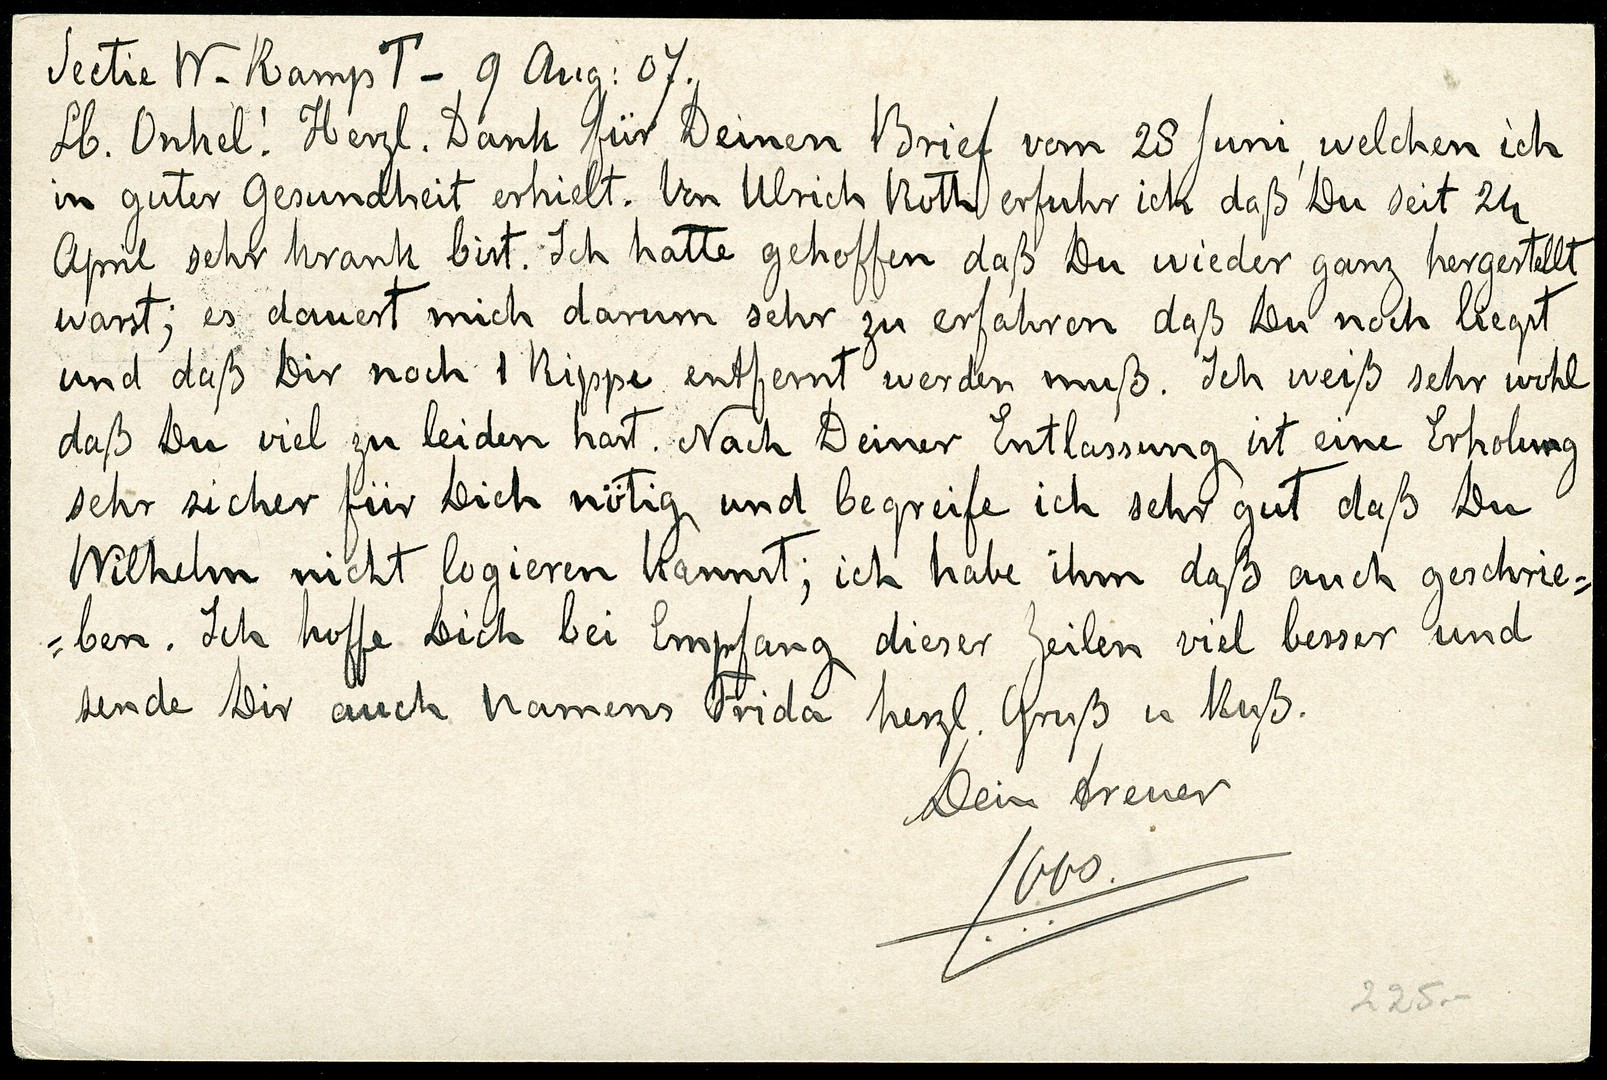 Sectie W- Kamp T- 9 Aug: 07.
Lb. Onkel! Herzl. Dank für Deinen Brief vom 28 Juni, welchen ich
in guter Gesundheit erhielt. Von Ulrich Roth erfuhr ich daß Du seit 24
April sehr krank bist. Ich hatte gehoffen daß Du wieder ganz hergestellt
warst; es dauert mich darum sehr zu erfahren daß Du noch liegst
und daß Dir noch 1 Rippe entfernt werden muß. Ich weiß sehr wohl
daß Du viel zu leiden hast. Nach Deiner Entlassung ist eine Erholung
sehr sicher für Dich nötig und begreife ich sehr gut daß Du
Wilhelm nicht logieren kannst; ich habe ihm daß auch geschrie=
=ben. Ich hoffe Dich bei Empfang dieser Zeilen viel besser und
sende Dir auch Namens Frida herzl. Gruß u Kuß.
Dein treuer
Joos.
225.-